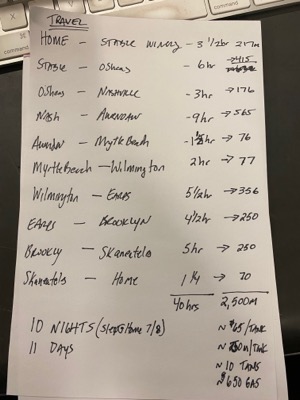 command
command
TRAVEL
HOME - STABLE WINERY - 3 1/2hr 217m
STABLE - OSheas - 6hr → 415
OSheas - NASHVILLE - 3hr → 176
NASH - AWENDAW - 9hr → 565
Awendaw - Myrtle Beach - 1 1/2hr → 76
Myrtle Beach - Wilmington 2hr → 77
Wilmington - EARPS 5 1/2hr → 356
EARPS - BROOKLYN 4 1/2hr → 250
Brookly - Skaneateles 5hr → 250
Skaneateles - Home 1 1/4 → 70
40hrs 2,500m
10 NIGHTS (Sleep @ Home 7/8)
11 DAYS
~ $65/TANK
~ 250m/TANK
~ 10 TANKS
~ $650 GAS